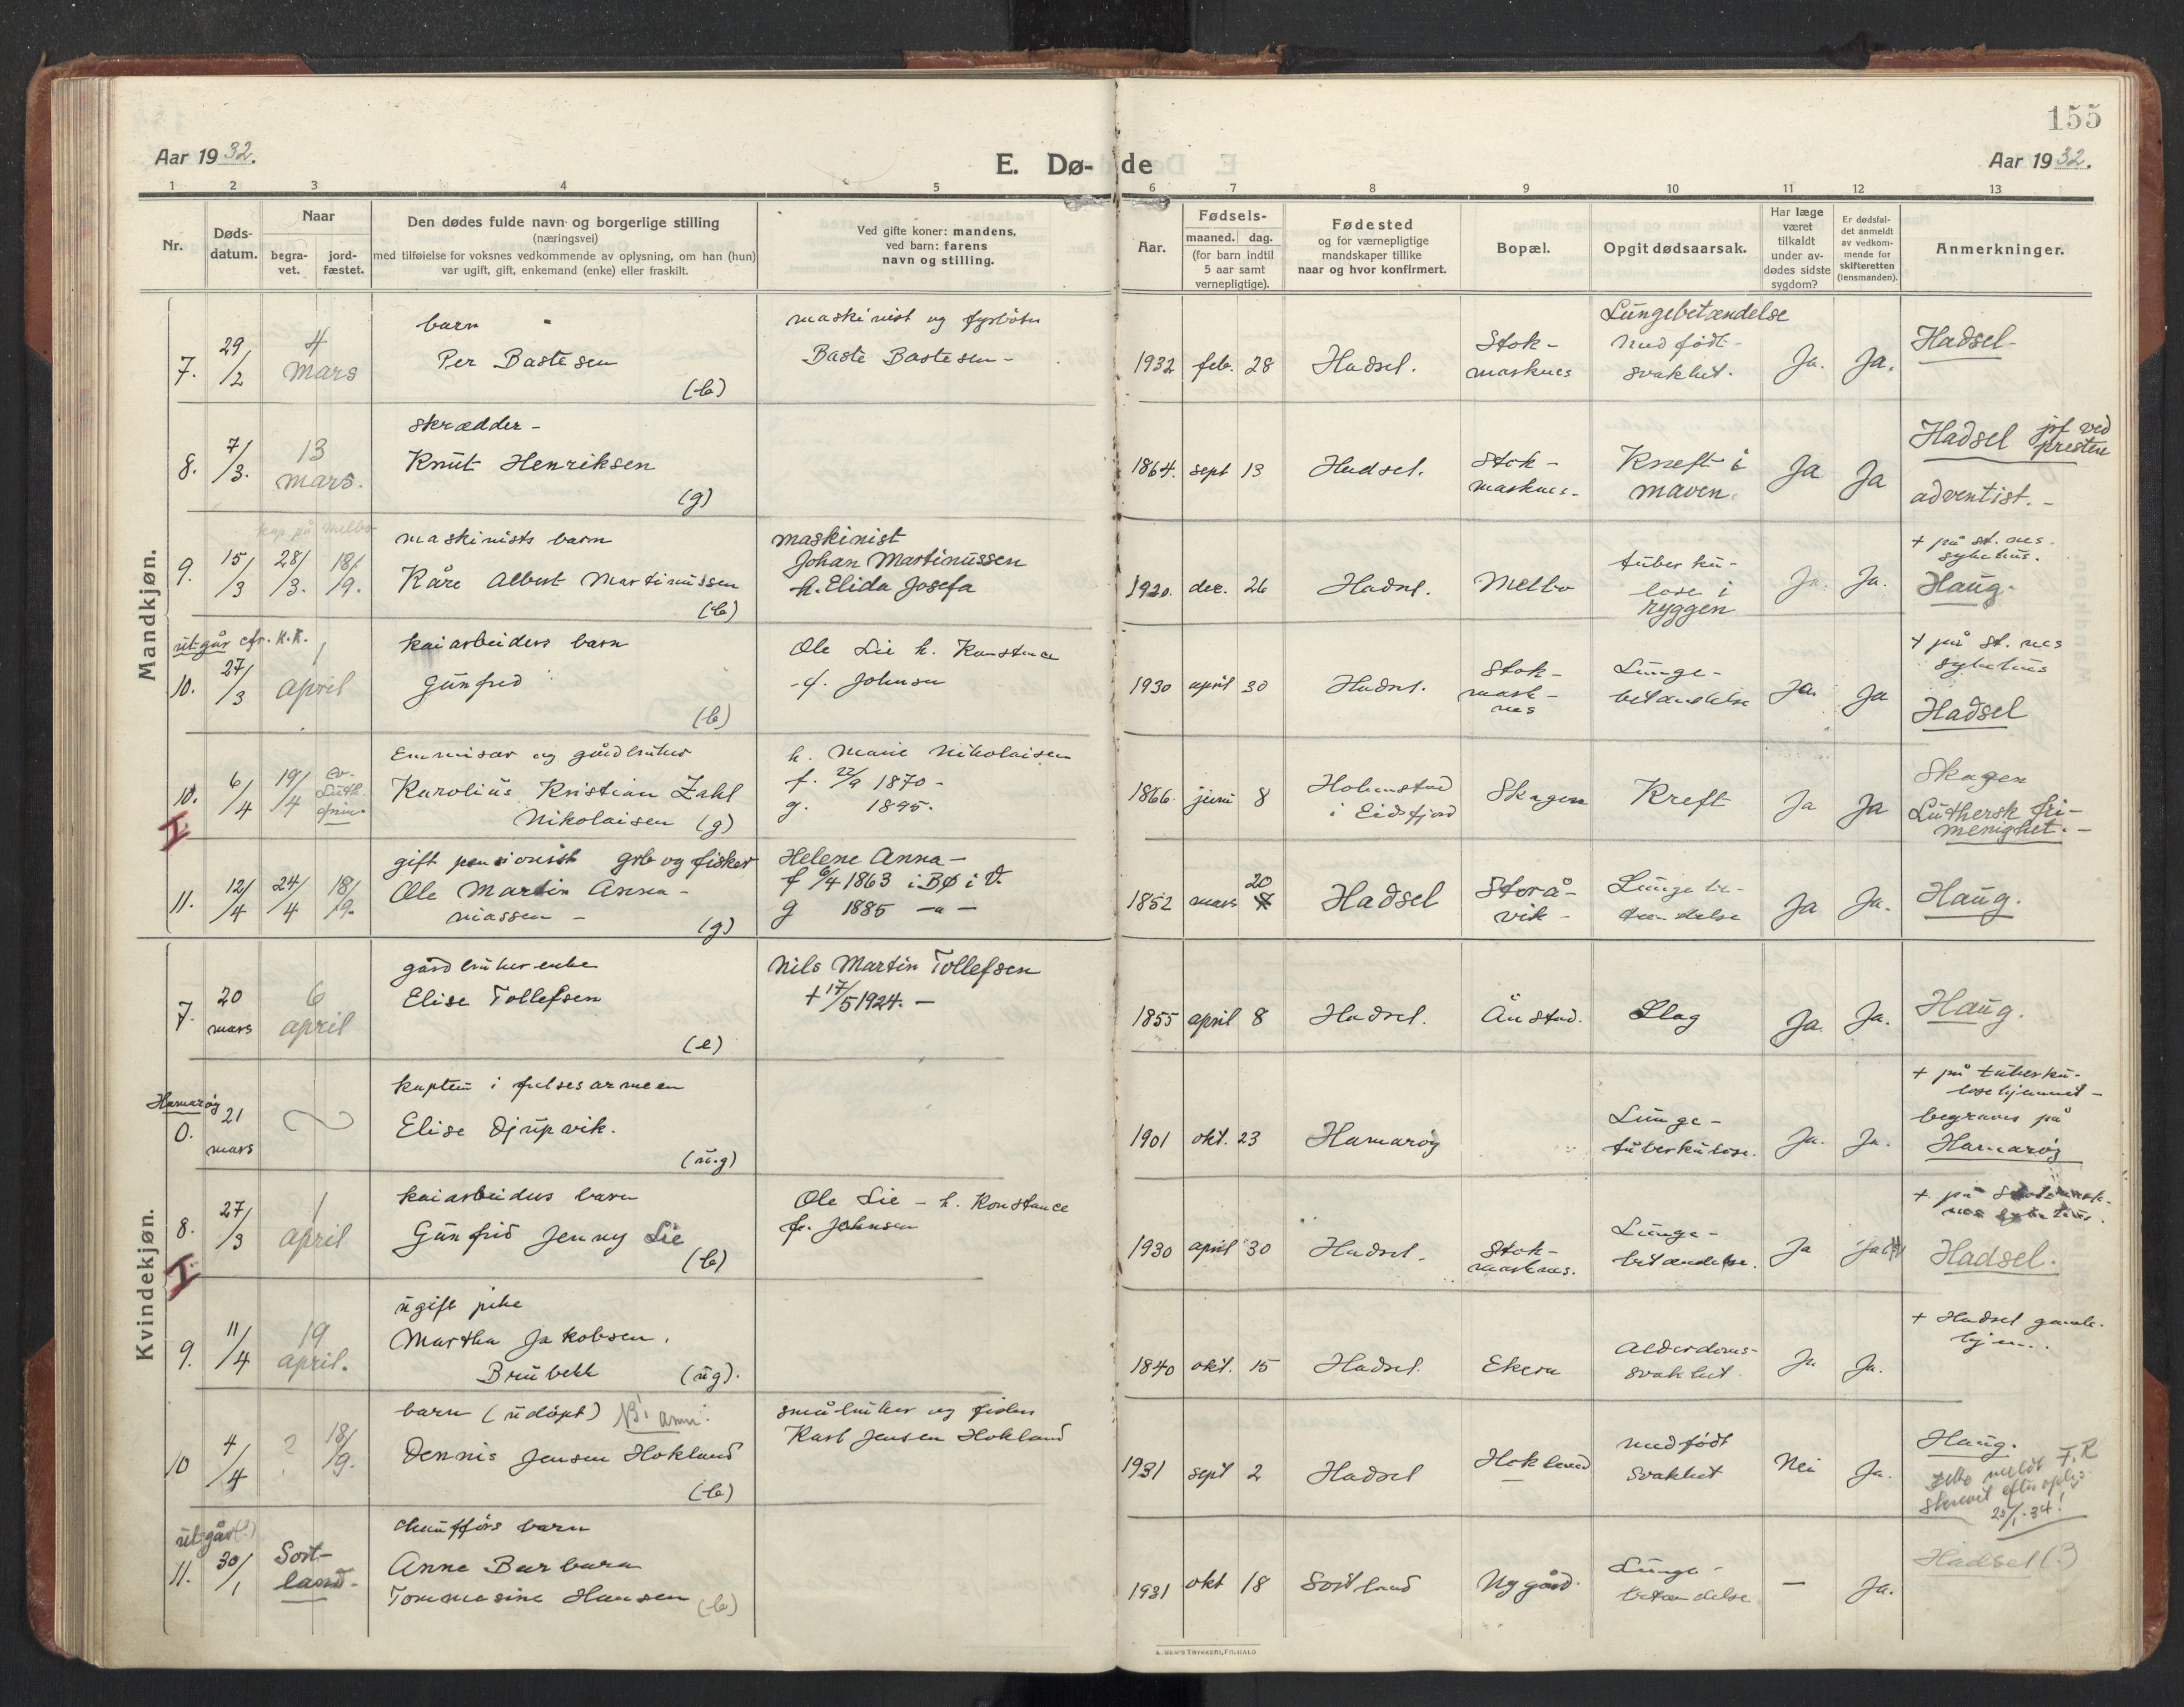 155
Aar 1932.
E. Dø-de
Aar 1932.
1 2 3 4 5 6 7 8 9 10 11 12 13
Nr.
Døds-
datum.
Naar
begra-
vet.
jord-
fæstet.
Den dødes fulde navn og borgerlige stilling
(næringsvei)
med tilføielse for voksnes vedkommende av oplysning, om han (hun)
var ugift, gift, enkemand (enke) eller fraskilt.
Ved gifte koner: mandens,
ved barn: farens
navn og stilling.
Aar.
Fødsels-
maaned. dag.
(for barn indtil
5 aar samt
vernepligtige).
Fødested
og for værnepligtige
mandskaper tillike
naar og hvor konfirmert.
Bopæl.
Opgit dødsaarsak.
Har læge
været
tilkaldt
under av-
dødes sidste
sygdom?
Er dødsfal-
det anmeldt
av vedkom-
mende for
skifteretten
(lensmanden).
Anmerkninger.
Mandkjøn.
7.
29/2
4
mars
barn
Per Bastesen
(b)
maskinist og fyrbøter
Baste Bastesen -
1932 feb. 28
Hadsel.
Stok-
marknes
Lungebetændelse
Medfødt
svakhet.
Ja. Ja.
Hadsel
8.
7/3.
13
mars.
skrædder -
Knut Henriksen
(g)
1864. sept 13
Hadsel.
Stok-
marknes.
Kræft i
maven.
Ja Ja
Hadsel jf ved
presten
adventist. -
9.
kap på Melbo
15/3 28/3. 18/9.
maskinists barn
Kåre Albert Martinussen
(b)
maskinist
Johan Martinussen
h. Elida Josefa
1920. dec. 26
Hadsel.
Melbo
tuberku-
lose i
ryggen
Ja. Ja.
+ på st. nes
sykehus.
Haug.
utgår cfr. K.K.
10.
27/3
1
april
kaiarbeiders barn
Gunfrid
(b)
Ole Lie h. Konstance
f. Johnsen
1930 april 30
Hadsel.
Stok-
mark-
nes
Lunge-
betændelse
Ja. Ja
+ på st. nes
sykehus
Hadsel
10.
6/4 19/4
ev.
Luth.
frim.
Emmisær og gårdbruker
Karolius Kristian Zahl
Nikolaisen (g)
h. Marie Nikolaisen
f. 22/9 1870 -
g. 1895.
1866. juni 8
Holmstad
i Eidsfjord
Skagen
Kreft
Ja Ja
Skagen
Luthersk fri-
menighet. -
I.
11.
12/4 24/4 18/9.
gift pensionist grb og fisker
Ole Martin Anna-
niassen -
(g)
Helene Anna -
f 6/4 1863 i Bø i V.
g 1885 - " -
1852 mars 20
Hadsel
Storå-
vik -
Lungebe-
tændelse
Ja Ja.
Haug.
Kvindekjøn.
7.
20
mars
6
april
gårdbrukerenke
Elise Tollefsen
(e)
Nils Martin Tollefsen
+ 17/5 1924. -
1855 april 8
Hadsel.
Ånstad.
Slag
Ja. Ja.
Haug.
Hamarøy
0.
21
mars
kaptein i frelsesarmeen
Elise Djupvik.
(ug)
1901 okt. 23
Hamarøy
Lunge-
tuberkulose.
Ja. Ja.
+ på tuberku-
losehjemmet -
begraves på
Hamarøy
8.
27/3
1
april
kaiarbeiders barn
Gunfrid Jenny Lie
(b)
Ole Lie - h. Konstance
f. Johnsen
1930 april 30
Hadsel.
Stok-
marknes.
Lunge-
betændelse.
Ja Ja
+ på Stokmark-
nes sykehus.
Hadsel.
I.
9.
11/4
19
april.
ugift pike
Martha Jakobsen.
Brubekk (ug).
1840 okt. 15
Hadsel.
Ekern
Alderdoms-
svakhet.
Ja Ja.
+ Hadsel gamle-
hjem.
10
4/4 ? 18/9.
barn (udøpt) NB! anm.
Dennis Jensen Hokland
(b)
småbruker og fisker
Karl Jensen Hokland
1931 sept 2
Hadsel
Hokland
medfødt
svakhet
Nei Ja.
Haug.
Ikke meldt F.R
skrevet efter oplys.
25/1-34!
utgår (?)
11.
30/1
Sort-
land.
chaufførs barn
Anne Barbara
Tommasine Hansen (b)
1931 okt 18
Sortland
Nygård.
Lunge-
betændelse
- Ja.
Hadsel (?)